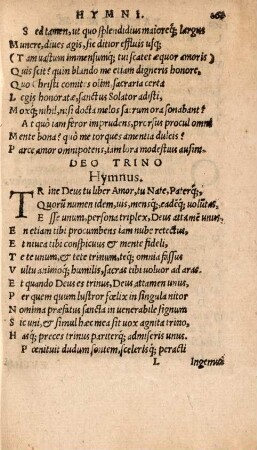 HYMNI.
S ed tamen, ut quo splendidius maioreq́; largus
M unere, dives agis, sic ditior effluis usq́;
( T am vastum immensumq́; tui scatet æquor amoris )
Q uis scit? quin blando me etiam digneris honore,
Q uo Christi comites olim, sacraria certa
L egis honoratæ, sanctus Solator adisti,
M oxq́; nihil, nisi docta melos sacrum ora sonabant?
A t quò tam feror imprudens, prorsus procul omni
M ente bona? quò me torques amentia dulcis?
P arce amor omnipotens, iam lora modestius ausim.
DEO TRINO
Hymnus.
TRine Deus tu liber Amor, tu Nate, Paterq́;
Quorũ numen idem, ius, mensq́; eadẽq́; voluntas,
E sse unum, persona triplex, Deus attamẽ unus.
E n etiam tibi procumbens iam nube retectus,
E t nivea tibi conspicuus & mente fideli,
T e te unum, & tete trinum, teq́; omnia fossus
V ultu animoq́; humilis, sacras tibi voluor ad aras.
E t quando Deus es trinus, Deus attamen unus,
P er quem quum lustror fœlix in singula nitor
N omina præfatus sancta in venerabile signum
S ic uni, & simul hæc mea sit vox agnita trino,
H asq́; preces trinus pariterq́; admiseris unus.
P œnituit dudum sontem, scelerisq́; peracti
L Ingemui